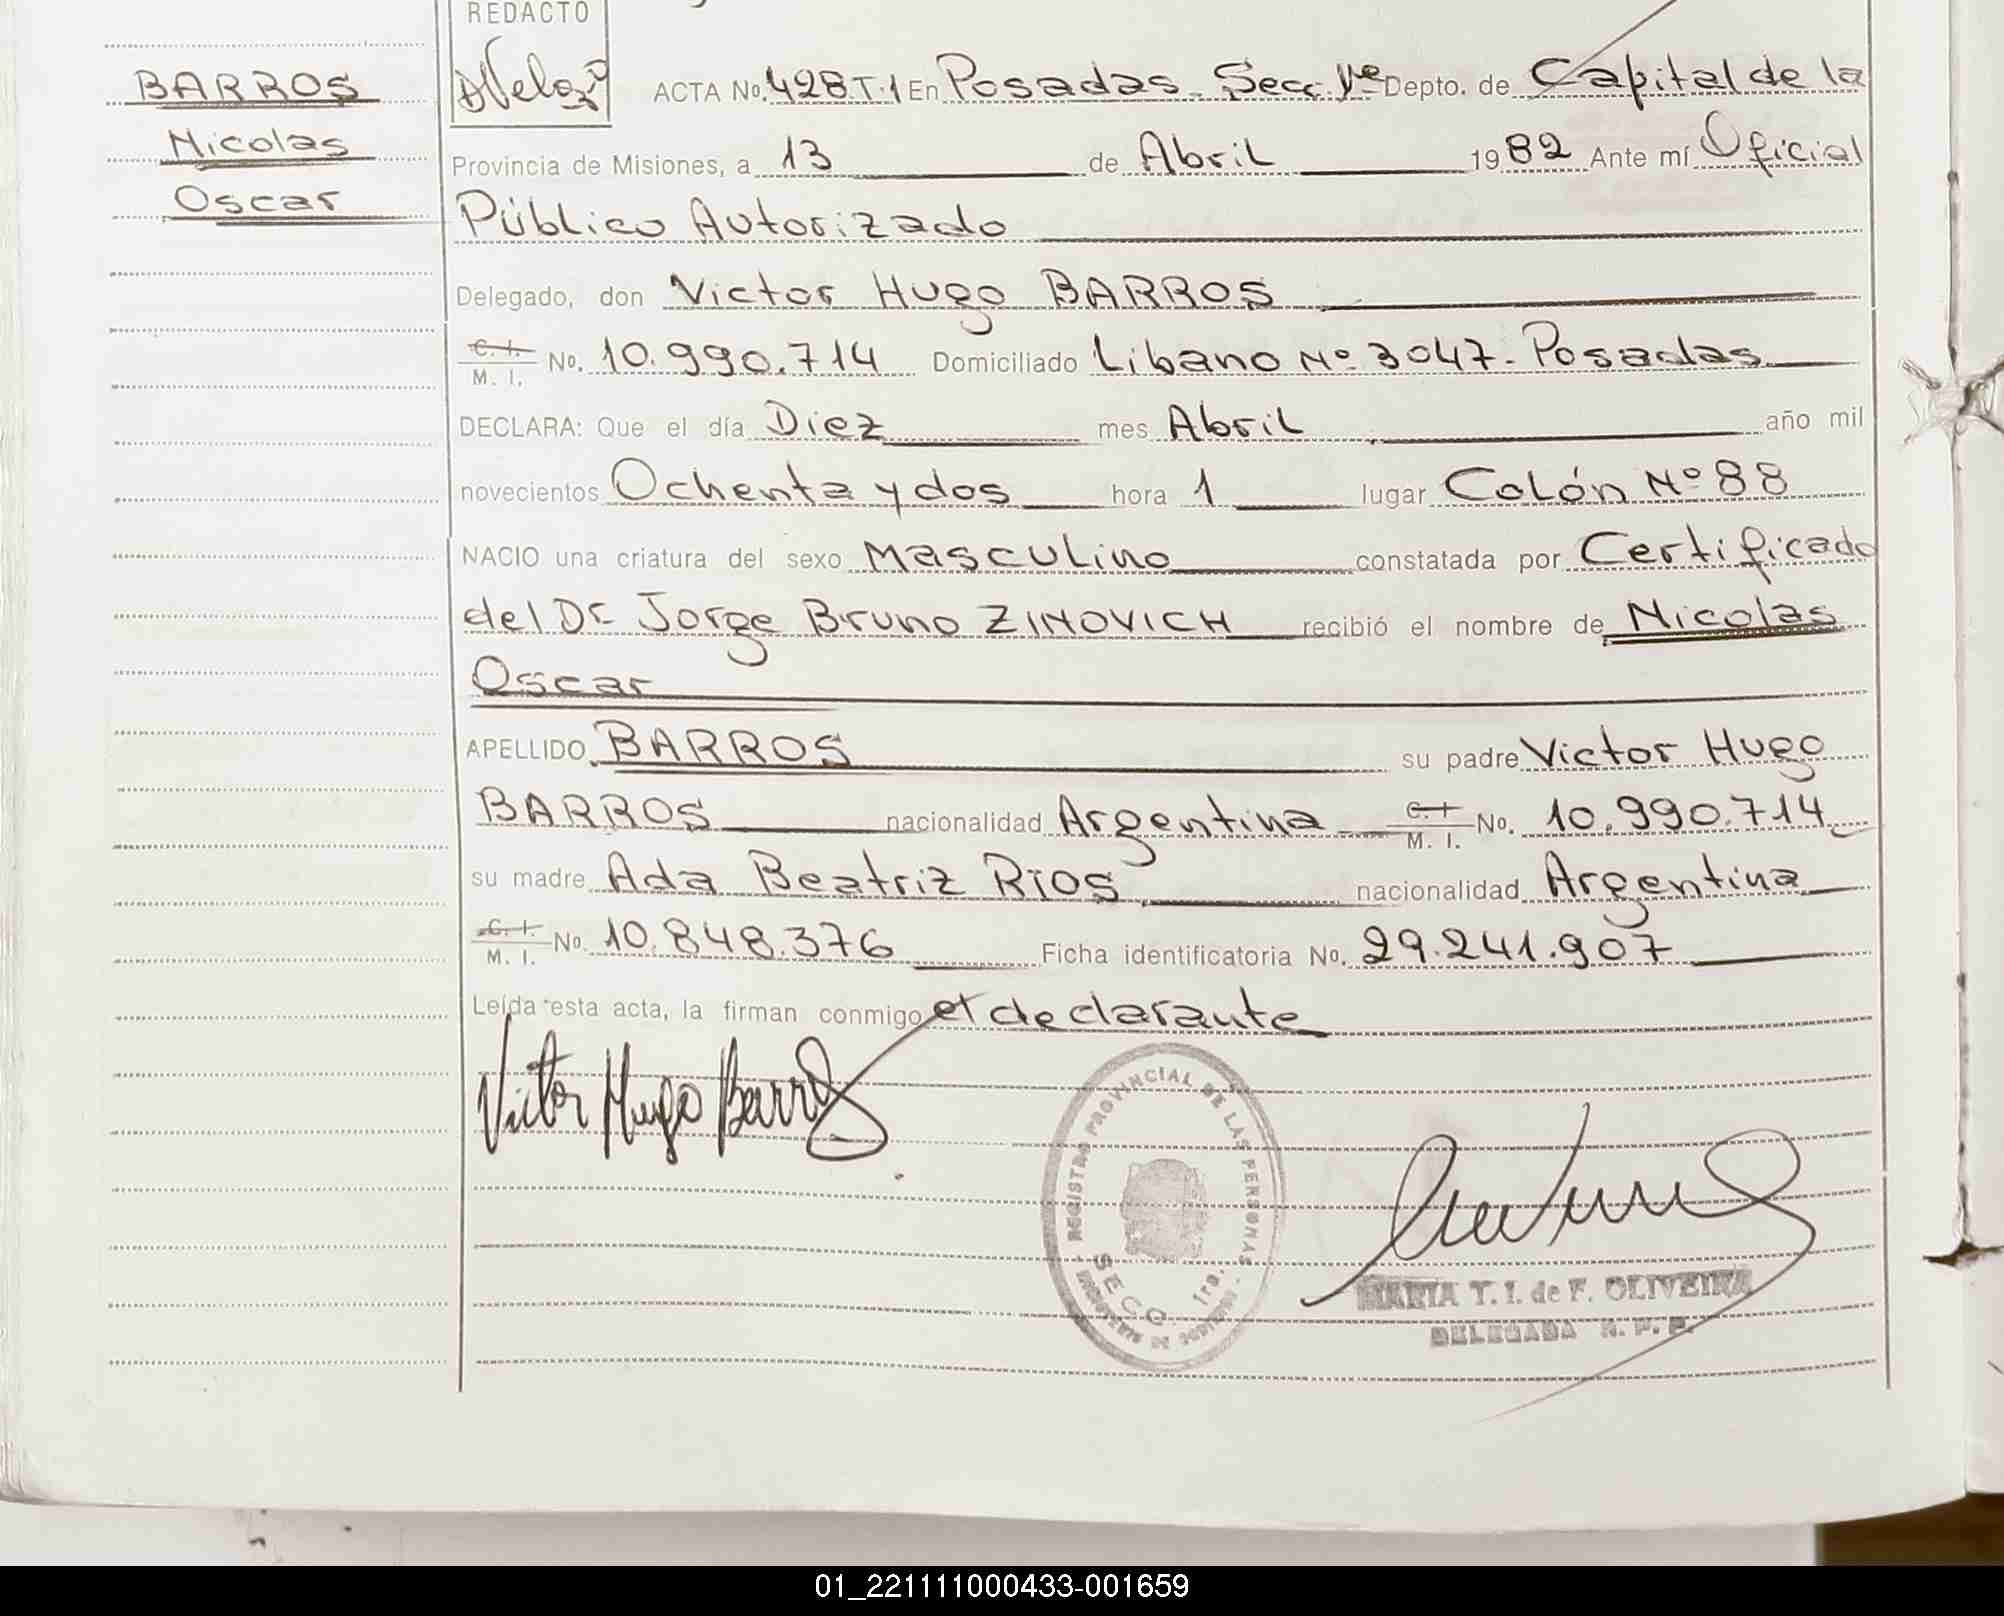 REDACTO
BARROS
Nicolas
Oscar
ACTA No. 428.T.1 En Posadas - Secc. 1ra Depto. de Capital de la
Provincia de Misiones, a 13 de Abril 1982 Ante mí Oficial
Público Autorizado
Delegado, don Victor Hugo BARROS
C. I.
M. I. No. 10.990.714 Domiciliado Libano Nº 3047 - Posadas
DECLARA: Que el día Diez mes Abril año mil
novecientos Ochenta y dos hora 1 lugar Colón Nº 88
NACIO una criatura del sexo Masculino constatada por Certificado
del Dr. Jorge Bruno ZINOVICH recibió el nombre de Nicolas
Oscar
APELLIDO BARROS su padre Victor Hugo
BARROS nacionalidad Argentina C. I. M. I. No. 10.990.714
su madre Ada Beatriz RIOS nacionalidad Argentina
C. I. M. I. No. 10.848.376 Ficha identificatoria No. 29.241.907
Leída esta acta, la firman conmigo el declarante
Victor Hugo Barros
REGISTRO PROVINCIAL DE LAS PERSONAS
SECC. 1ra.
MINISTERIO DE GOBIERNO
MARIA T. I. de F. OLIVEIRA
DELEGADA R. P. P.
01_221111000433-001659